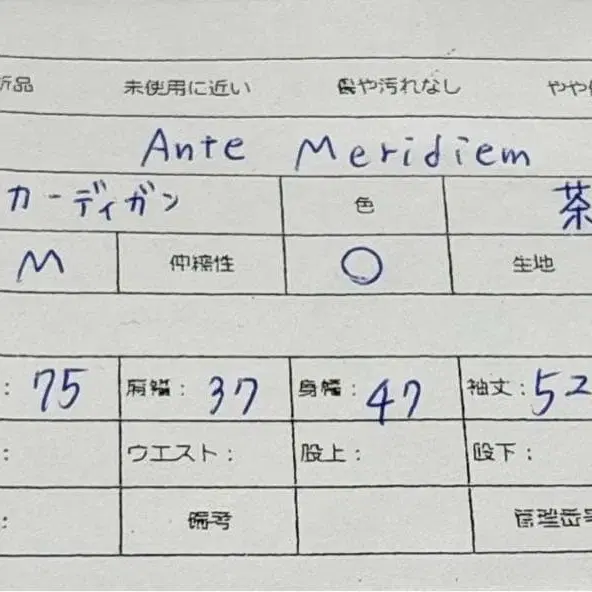 新品 未使用に近い 傷や汚れなし やや
Ante Meridiem
カーディガン 色 茶
M 伸縮性 ○
: 75 肩幅: 37 身幅: 47 袖丈: 52
: ウエスト: 股上: 股下:
: 備考 管理番号